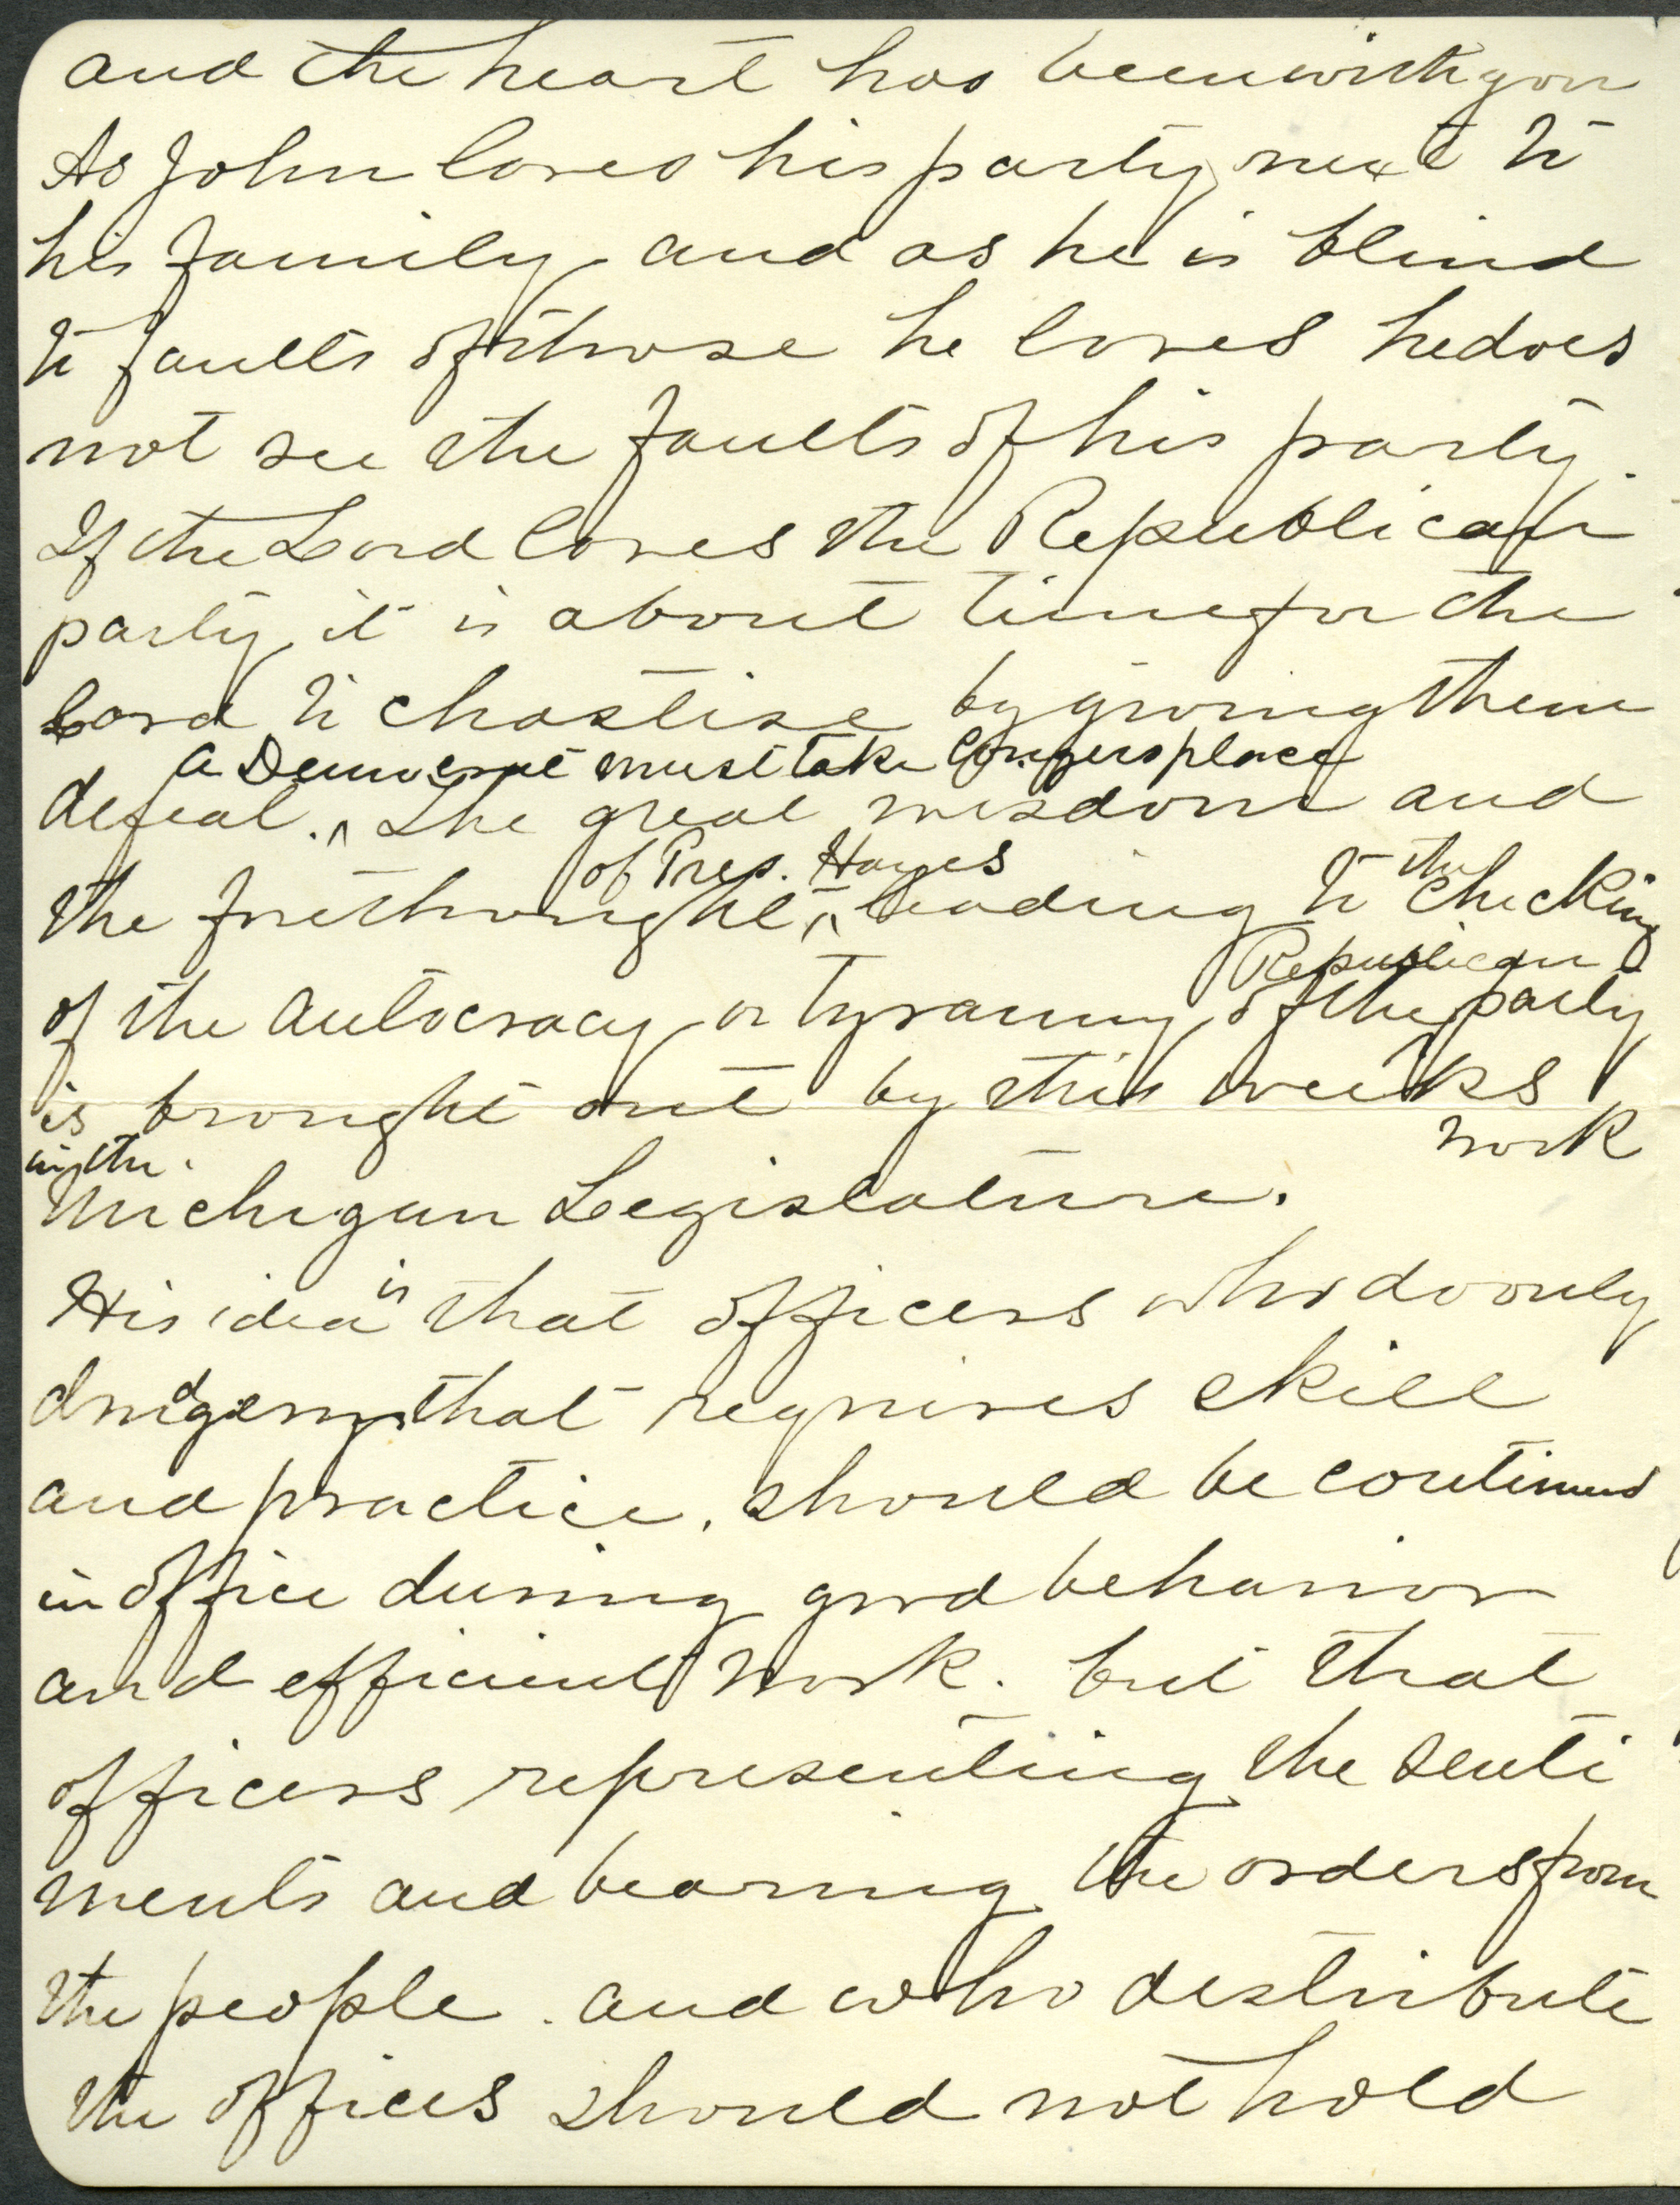 and the heart has been with you
As John loves his party, next to
his family, and as he is blind
to faults of those he loves he does
not see the faults of his party.
If the Lord loves the Republican
party, it is about time for the
Lord to chastise by giving them
a Democrat must take Congers place
defeat. ^ The great wisdom and
of Pres. Hayes
the forethought ^ leading to the checking
Republican
of the autocracy or tyranny of the party
is brought out by this weeks
work
in the
Michigan Legislature.
His idea is that officers who do only
drudgery, that requires skill
and practice, should be continued
in office during good behavior
and efficient work. but that
officers representing the senti
ments and bearing the orders from
the people. and who distribute
the offices should not hold